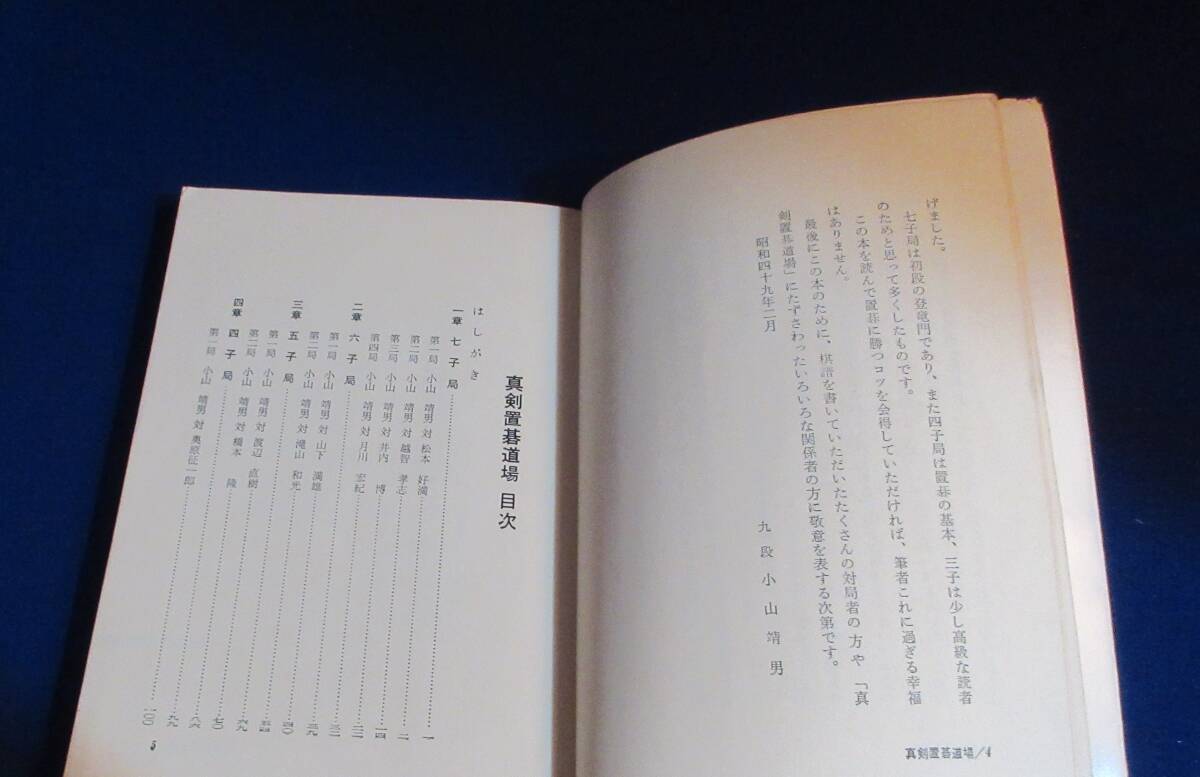 げました。
七子局は初段の登竜門であり、また四子局は置碁の基本、三子は少し高級な読者
のためと思って多くしたものです。
この本を読んで置碁に勝つコツを会得していただければ、筆者これに過ぎる幸福
はありません。
最後にこの本のために、棋譜を書いていただいたたくさんの対局者の方や「真
剣置碁道場」にたずさわったいろいろな関係者の方に敬意を表する次第です。
昭和四十九年二月
九段 小山靖男
真剣置碁道場/4
真剣置碁道場 目次
はしがき
一章 七子局……一
第一局 小山 靖男 対 松本 好満……二
第二局 小山 靖男 対 越智 孝志……一四
第三局 小山 靖男 対 井内 博……二三
第四局 小山 靖男 対 月川 宏紀……三二
二章 六子局……三九
第一局 小山 靖男 対 山下 満雄……四〇
第二局 小山 靖男 対 滝山 和光……五四
三章 五子局……六九
第一局 小山 靖男 対 渡辺 直樹……七〇
第二局 小山 靖男 対 橋本 隆……八六
四章 四子局……九九
第一局 小山 靖男 対 奥原征一郎……一〇〇
5